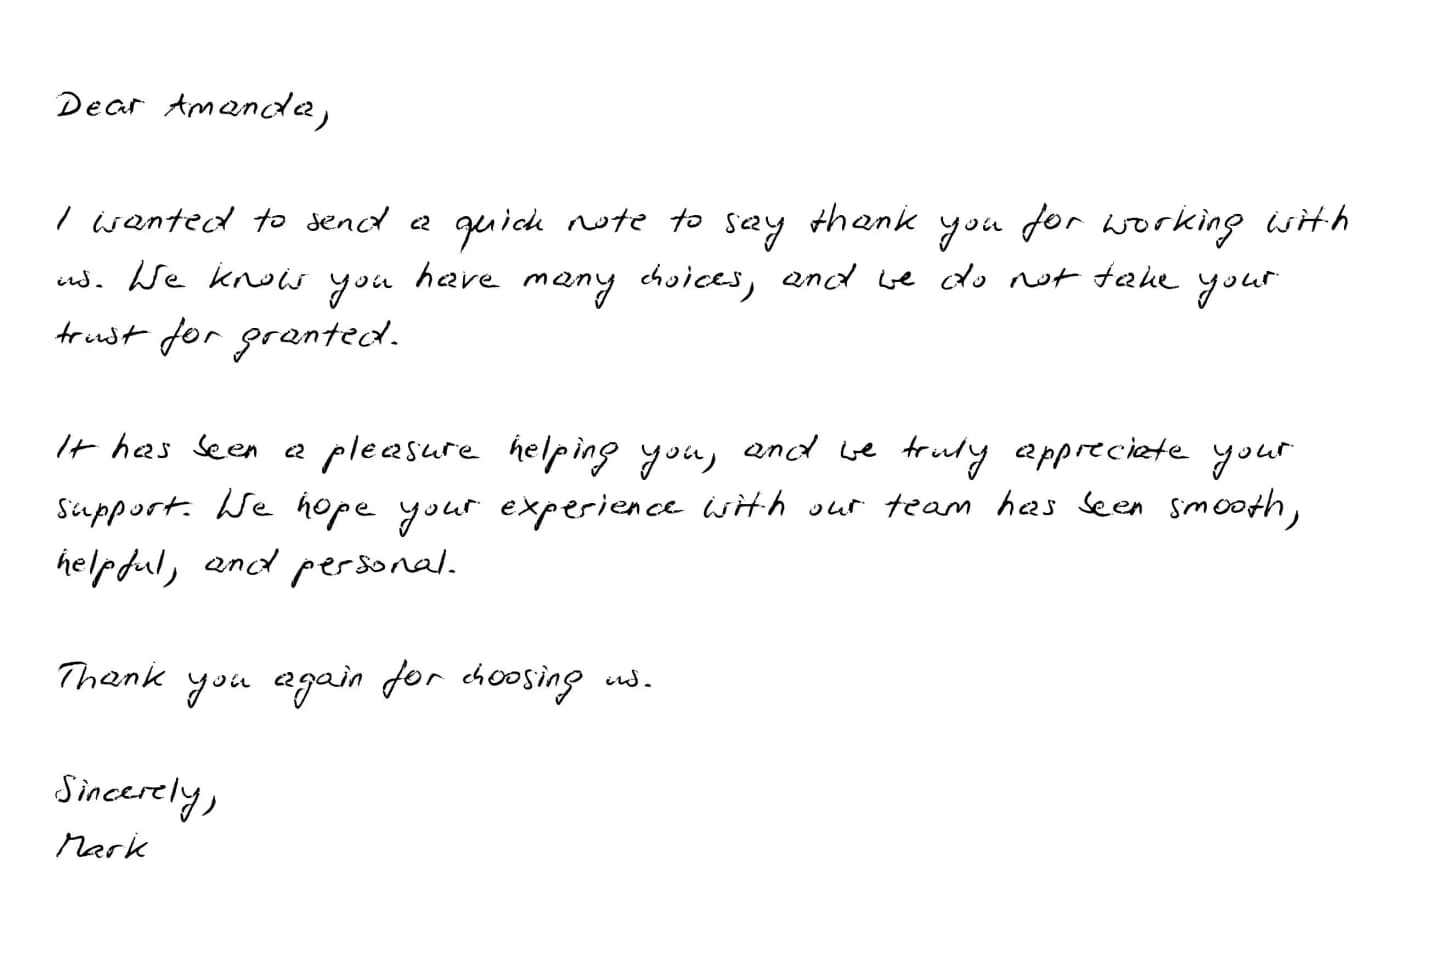 Dear Amanda,
I wanted to send a quick note to say thank you for working with
us. We know you have many choices, and we do not take your
trust for granted.
It has been a pleasure helping you, and we truly appreciate your
support. We hope your experience with our team has been smooth,
helpful, and personal.
Thank you again for choosing us.
Sincerely,
Mark